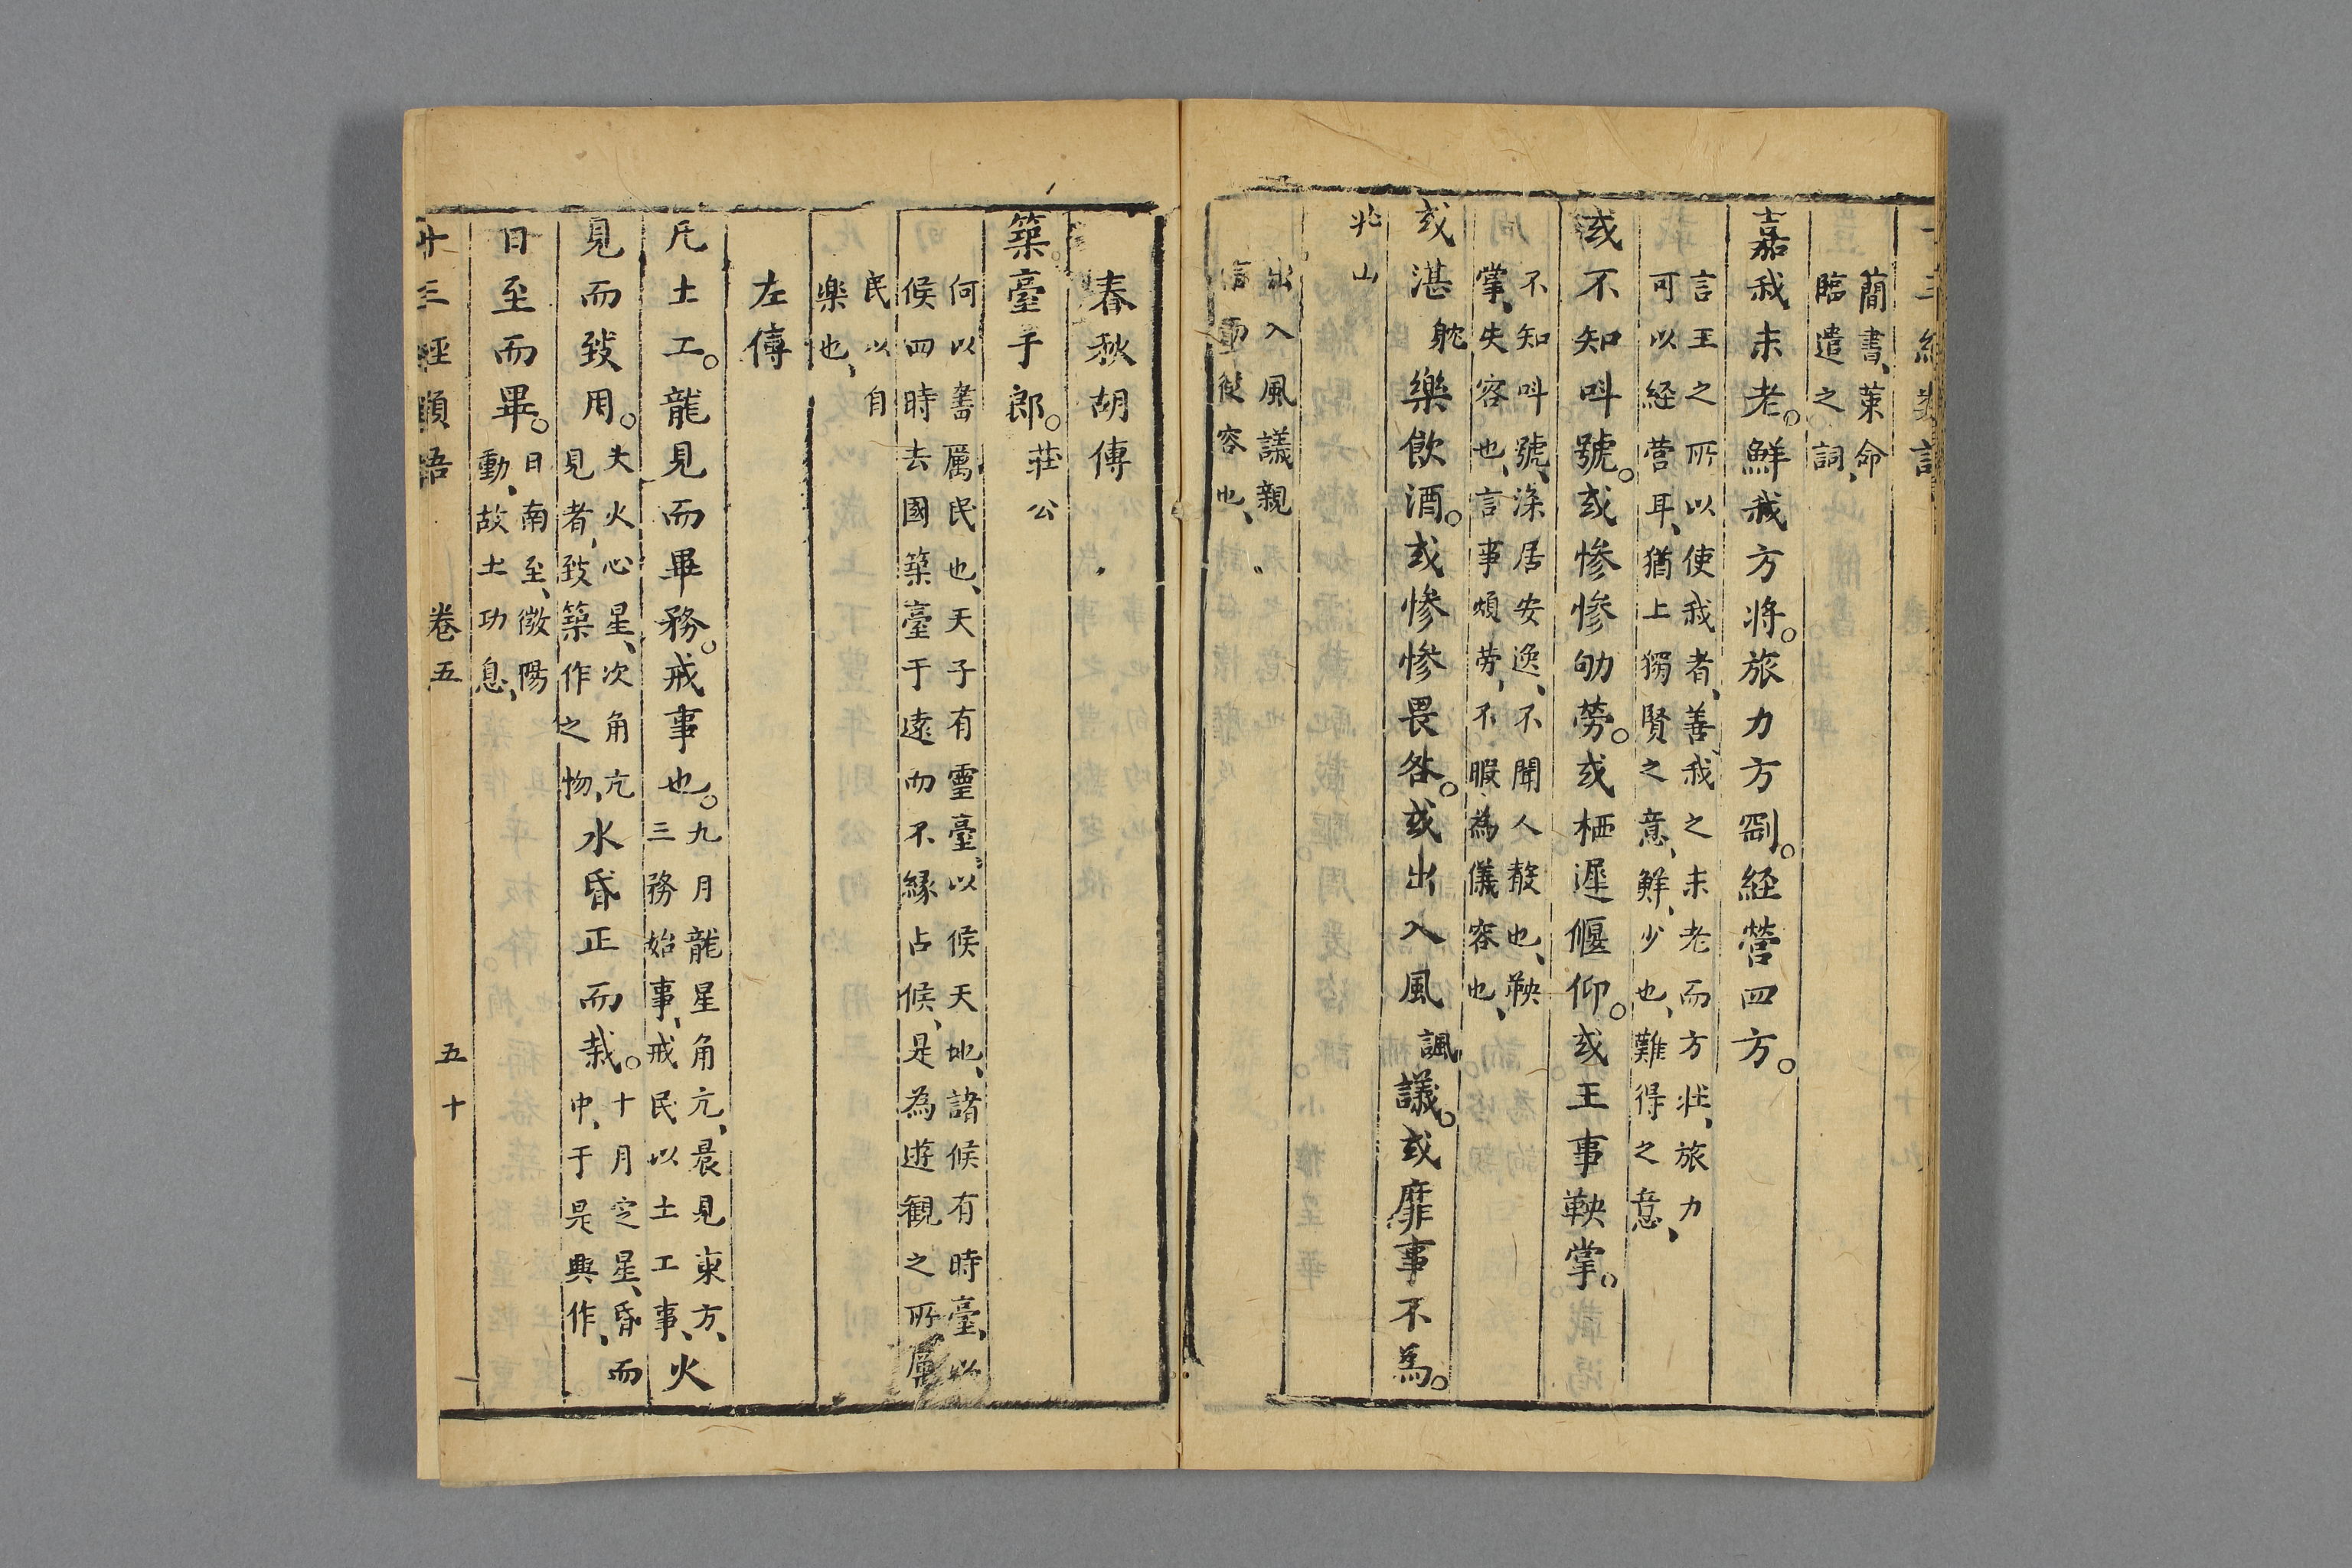 簡書、䇿命
臨遣之詞、
嘉我未老。鮮我方將。旅力方剛。経營四方。
言王之所以使我者、善我之未老而方壯、旅力
可以経营耳、猶上獨賢之意、鮮、少也、難得之意、
或不知呌號。或惨惨劬劳。或栖遲偃仰。或王事鞅掌。
不知呌號、深居安逸、不聞人聲也、鞅
掌、失容也、言事煩劳、不暇為儀容也、
或湛躭樂飲酒。或惨惨畏咎。或出入風諷議。或靡事不為。
出入風議親
信而従容也、
北山
春秋胡傳
築臺于郎。莊公
何以書厲民也、天子有靈臺、以候天地、諸候有時臺、以
候四時去國築臺于遠而不緣占候、是為遊観之所厲
民以自
楽也、
左傳
凡土工。龍見而畢務。戒事也。九月龍星角亢、晨見東方、
三務始事、戒民以土工事、火
見而致用。大火心星、次角亢
見者、致築作之物、水昏正而栽。十月定星、昏而
中、于是興作、
日至而畢。日南至、微陽
動、故土功息、
十三經類語 卷五 五十